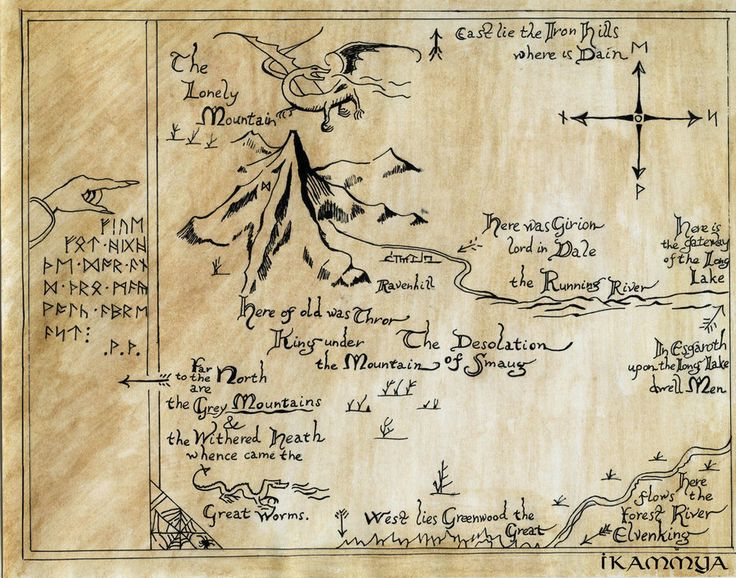 East lie the Iron Hills
where is Dain
The
Lonely
Mountain
ᛖ
ᚾ
ᛋ
ᚹ
ᛞ
ᚠᛁᚢᛖ
ᚻᛁᚷᚻ
ᚦᛖ
ᚪᚾ
ᛞ
ᚪᛒᚱᛖ
ᚪᛋᛏ
Here was Girion
lord in Dale
Here is
the gateway
of the Long
Lake
the Running River
Ravenhill
Here of old was Thror
King under
the Mountain
The Desolation
of Smaug
In Esgaroth
upon the Long Lake
dwell Men
Far
to the North
are
the Grey Mountains
&
the Withered Heath
whence came the
Great Worms.
West lies Greenwood the
Great
Here
flows the
forest River
Elvenking
IKAMMYA